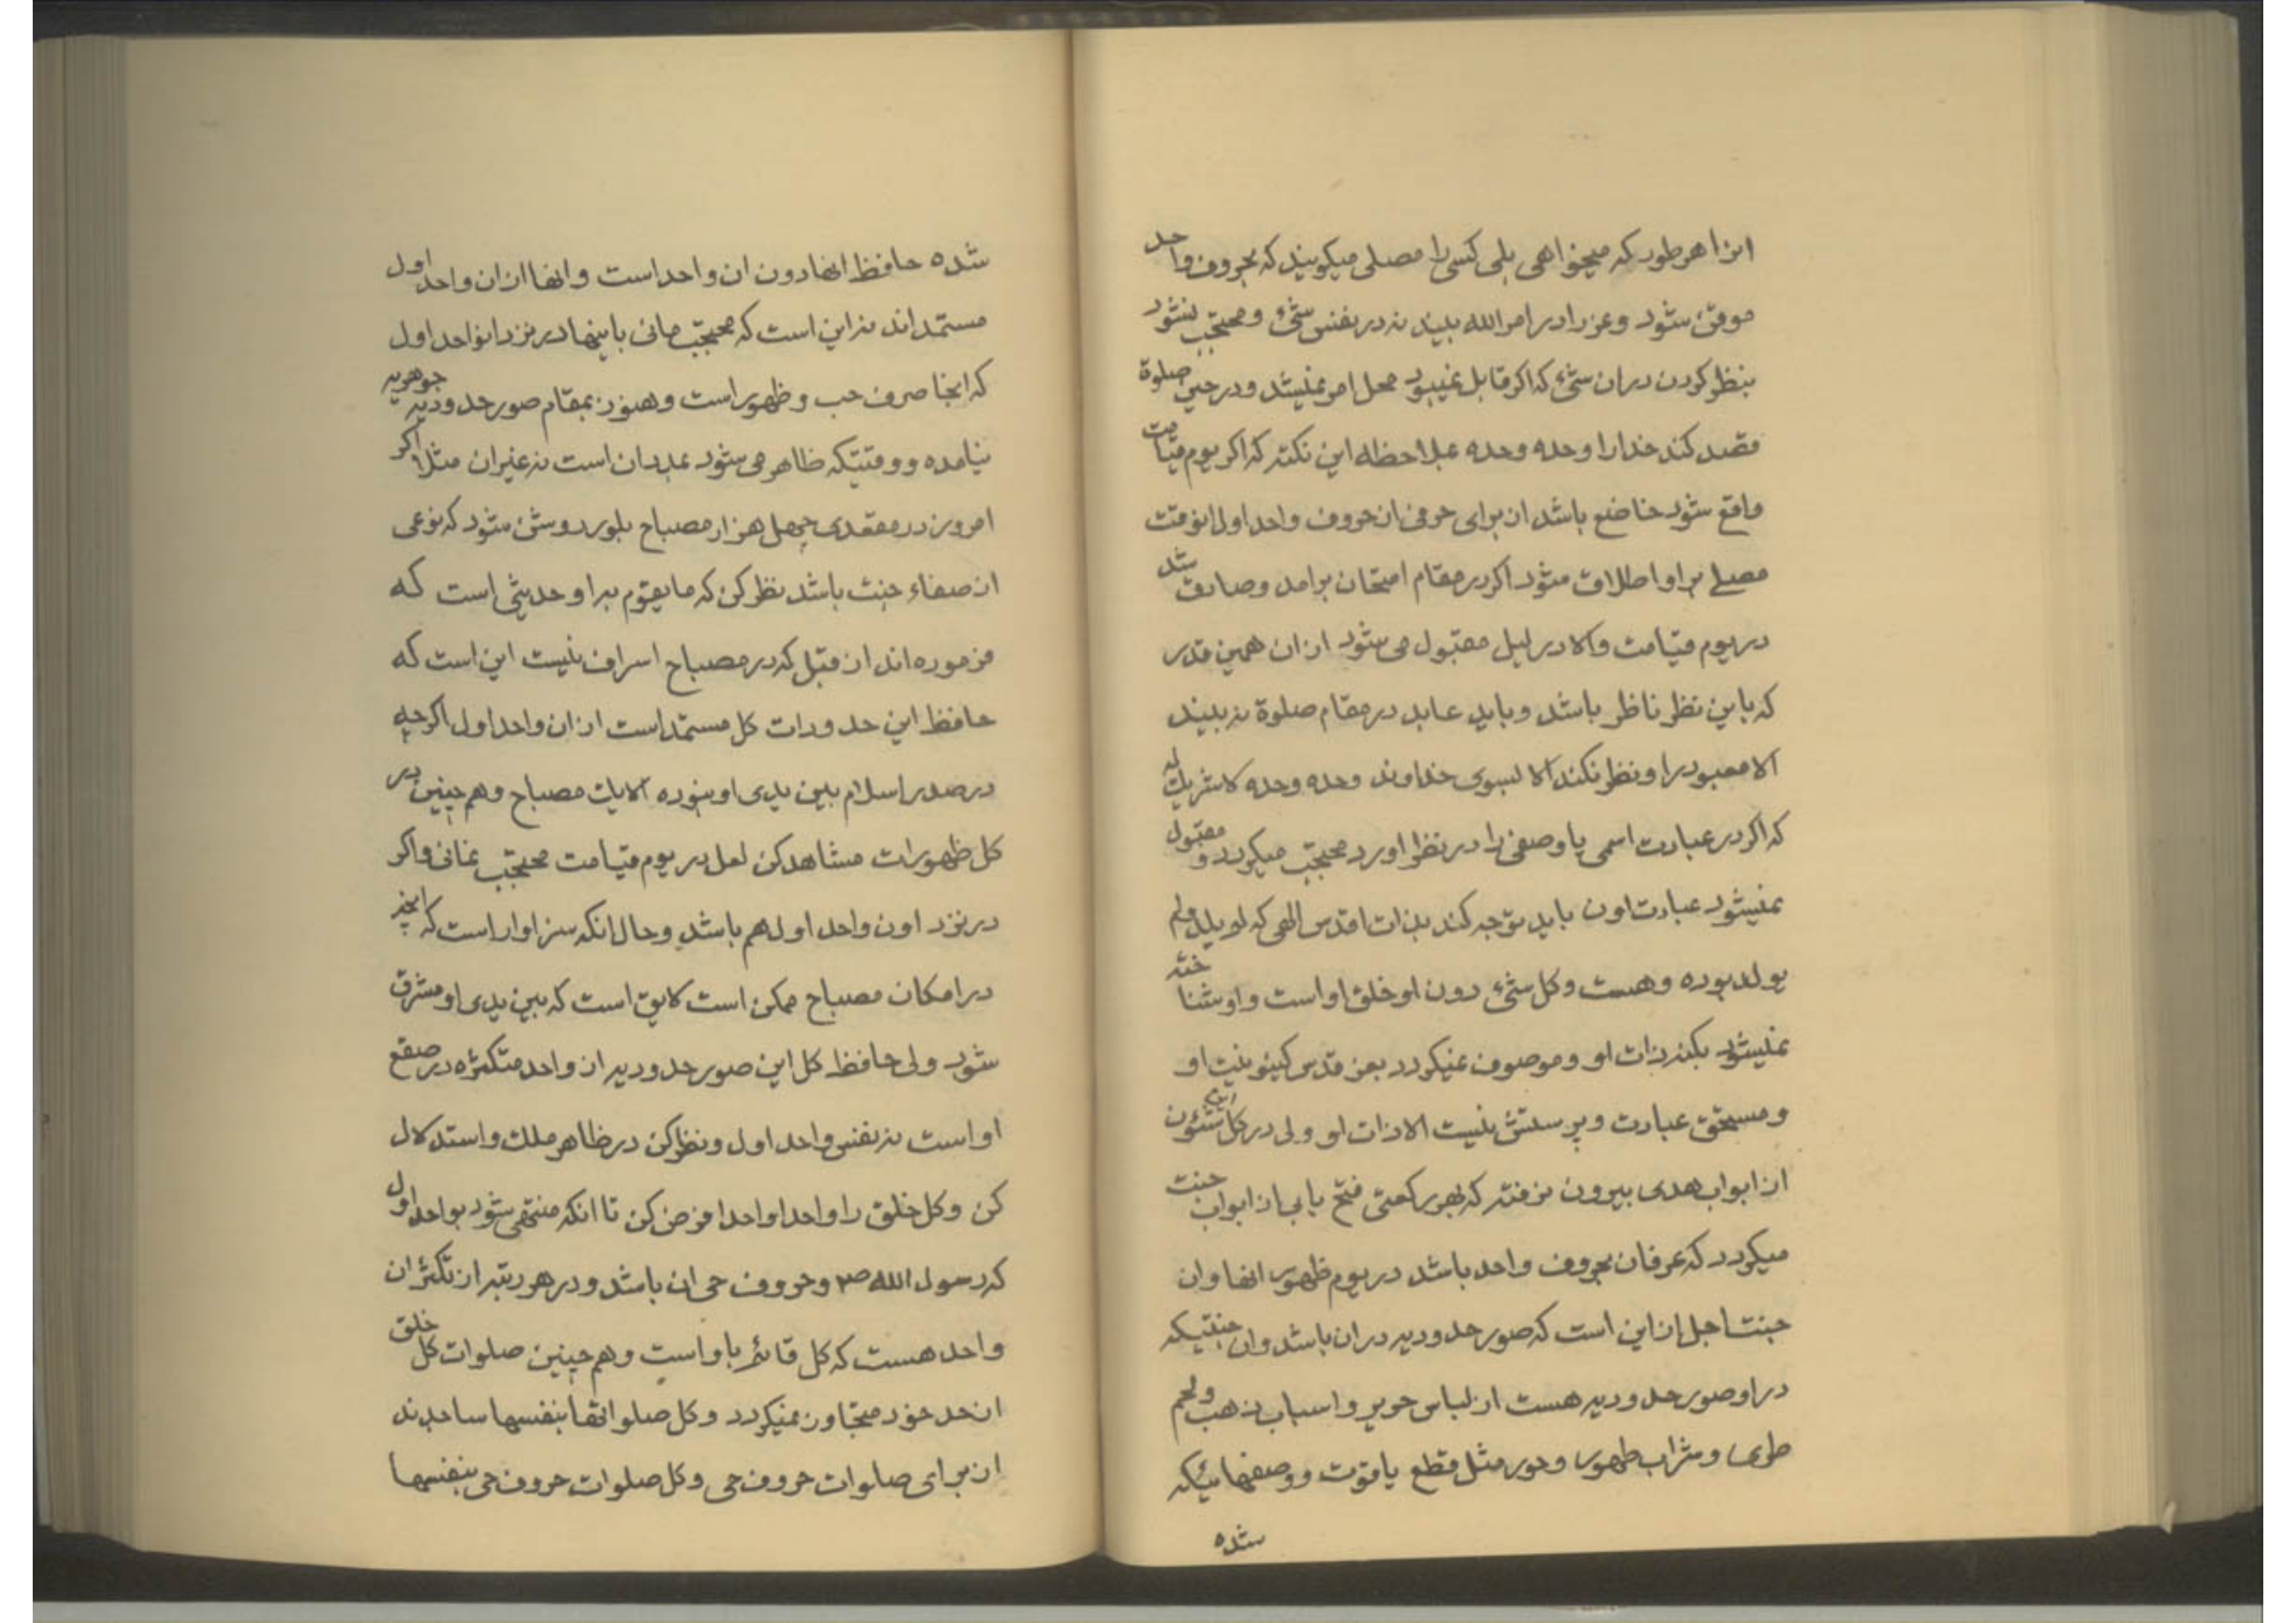 انرا هر طور که میخواهی بلی کسی را مصلی میکویند که بحروف واحد
موقن شود و عز را در امر الله بیند نه در نفس شئ و محتجب نشود
بنظر کردن در ان شئ که اکر قابل نمیبود محل امر نمیشد و در حین صلوة
قصد کند خدا را وحده وحده بملاحظه این نکته که اکر یوم قیامت
واقع شود خاضع باشد از برای حرفی از حروف واحد اول انوقت
مصلی بر او اطلاق میشود اکر در مقام امتحان برامد و صادق شد
در یوم قیامت والا در لیل مقبول می شود از ان همین قدر
که باین نظر ناظر باشد و باید عابد در مقام صلوة نه بیند
الا معبود را و نظر نکند الا بسوی خداوند وحده وحده لا شریک له
که اکر در عبادت اسمی یا وصفی را در نظر اورد محتجب میکردد و مقبول
نمیشود عبادت اون باید توجه کند بذات اقدس الهی که لم یلد ولم
یولد بوده و هست و کل شئ دون او خلق او است و او شناخته
نمیشود بکنه ذات او و موصوف نمیکردد بعز قدس کینونیت او
و مستحق عبادت و پرستش نیست الا ذات او ولی در کل شئون
از ابواب هدی بیرون نرفته که بهر رکعتی فتح بابی از ابواب جنت
میکردد که عرفان بحروف واحد باشد در یوم ظهور انها و ان
جنت اجل از این است که صور حدودیه در ان باشد و ان جنتیکه
در او صور حدودیه هست از لباس حریر و اسباب ذهب و لحم
طری و شراب طهور و حور مثل قطع یاقوت و وصفهائیکه
شده
شده حافظ انها دون ان واحد است و انها از ان واحد اول
مستمد اند نه این است که محتجب مانی باینها در نزد انواحد اول
که انجا صرف حب و ظهور است و هنوز بمقام صور حدودیه جوهریه
نیامده و وقتیکه ظاهر می شود بمدد ان است نه غیر ان مثلا اکر
امروز در مقعدی چهل هزار مصباح بلور روشن شود که نوعی
از صفاء جنت باشد نظر کن که ما یقوم به او حدیثی است که
فرموده اند از قبل که در مصباح اسراف نیست این است که
حافظ این حدودات کل مستمد است از ان واحد اول اکرچه
در صدر اسلام بین یدی او نبوده الا یک مصباح و هم چنین در
کل ظهورات مشاهده کن لعل در یوم قیامت محتجب نمانی و اکر
در نزد اون واحد اول هم باشد و حال انکه سزاوار است که انچه
در امکان مصباح ممکن است لایق است که بین یدی او مشرق
شود ولی حافظ کل این صور حدودیه از واحد متکثره در صقع
او است نه نفس واحد اول و نظر کن در ظاهر ملک و استدلال
کن و کل خلق را واحدا واحدا فرض کن تا انکه منتهی شود بواحد اول
که رسول الله ص و حروف حی ان باشد و در هر رتبه از تکثر ان
واحد هست که کل قائم باو است و هم چنین صلوات کل خلق
از حد خود متجاوز نمیکردد و کل صلواتها بنفسها ساجدند
از برای صلوات حروف حی و کل صلوات حروف حی بنفسها